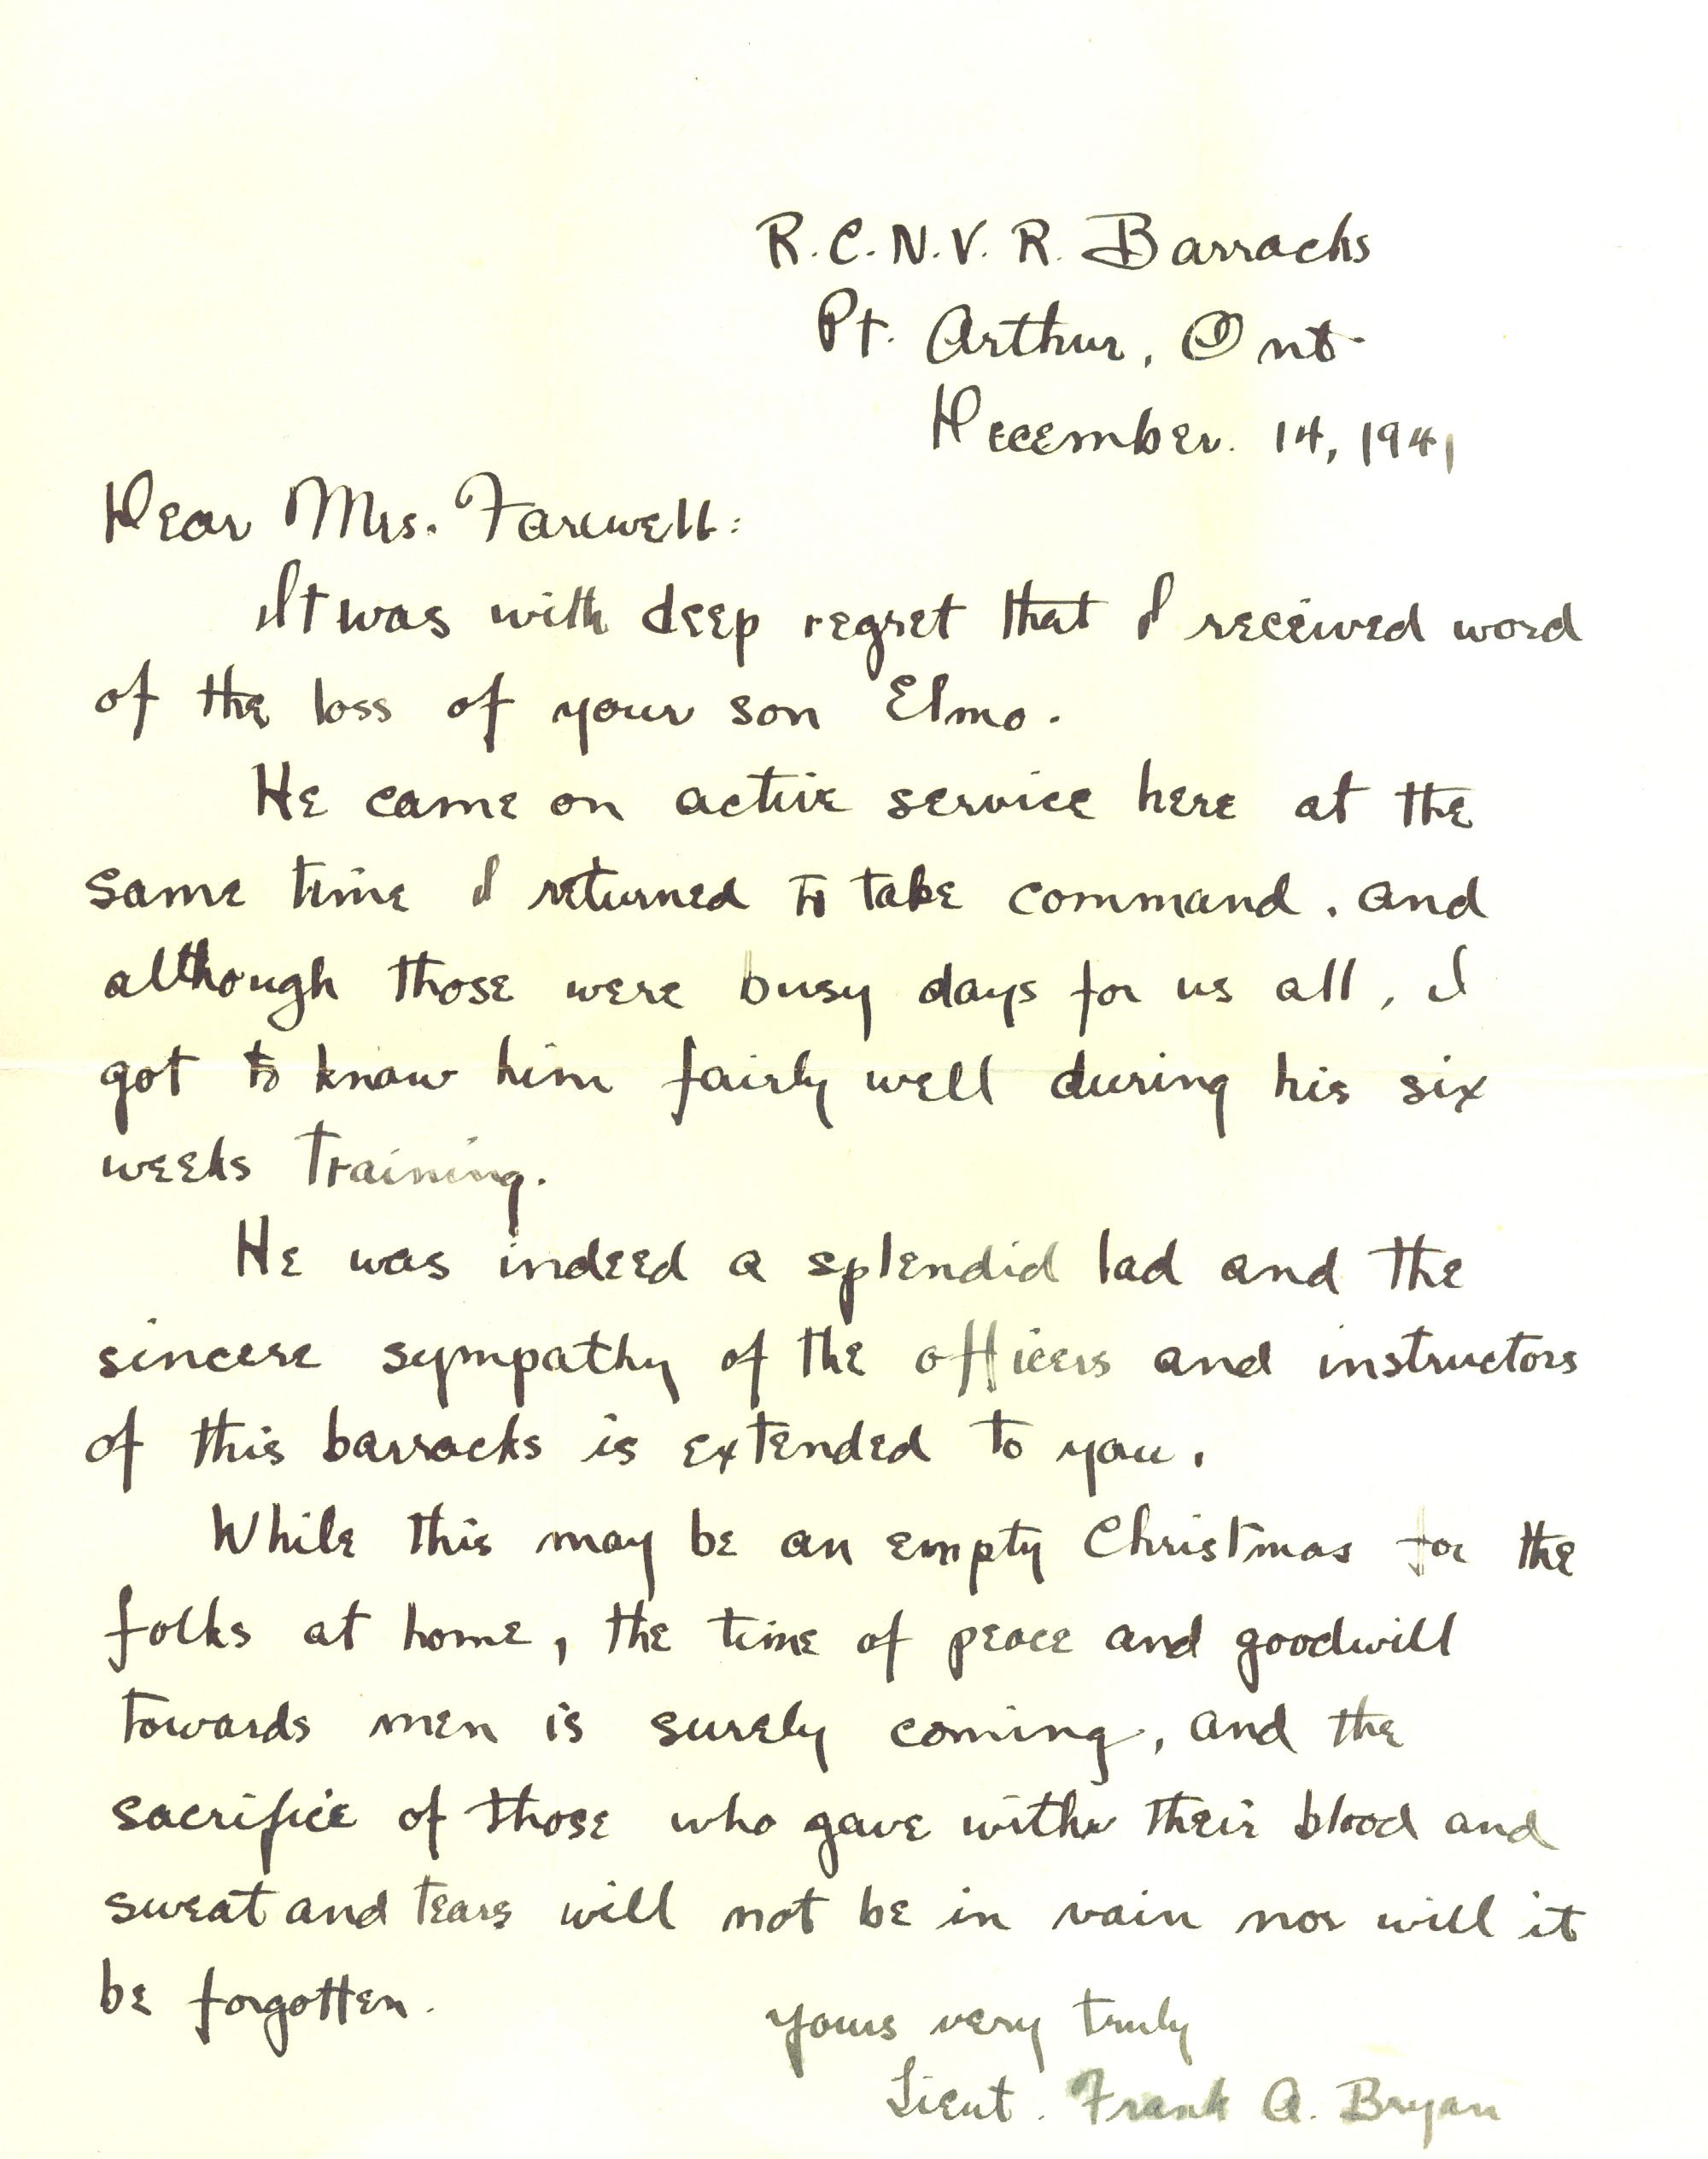 R.C.N.V.R. Barracks
Pt. Arthur, Ont.
December. 14, 1941
Dear Mrs. Farewell:
It was with deep regret that I received word
of the loss of your son Elmo.
He came on active service here at the
same time I returned to take command. and
although those were busy days for us all, I
got to know him fairly well during his six
weeks training.
He was indeed a splendid lad and the
sincere sympathy of the officers and instructors
of this barracks is extended to you.
While this may be an empty Christmas for the
folks at home, the time of peace and goodwill
towards men is surely coming, and the
sacrifice of those who gave with their blood and
sweat and tears will not be in vain nor will it
be forgotten.
Yours very truly
Lieut. Frank A. Bryan